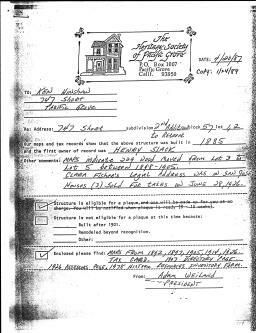 The
Heritage Society
of Pacific Grove
P.O. Box 1007
Pacific Grove
Calif. 93950
DATE:
COPY: 1/04/89
TO: KEN HINSHAW
747 Shoat
PACIFIC Grove
Re: Address: 747 Shoat subdivision 2nd Addition block 57 lot 42
to Retreat
Our maps and tax records show that the above structure was built in 1885
and the first owner of record was HENRY SLACK
Other comments: MAPS indicate 229 deed moved from Lot 3 to
Lot 5 between 1898-1905.
Legal Address was in SAN
Houses (3) Sold for taxes on June 28, 1926.
Structure is eligible for a plaque, and one will be made up for you at no
charge. You will be notified when plaque is ready,
Structure is not eligible for a plaque at this time because:
Built after 1901.
Remodeled beyond recognition.
Other:
Enclosed please find: MAPS FROM 1892, 1897, 1905, 1914, 1926.
TAX CARD. DIRECTORY PAGE.
1926 ASSESSORS PAGE, 1978 HISTORIC RESOURCES INVENTORY FORM.
From: Adam Weiland
PRESIDENT